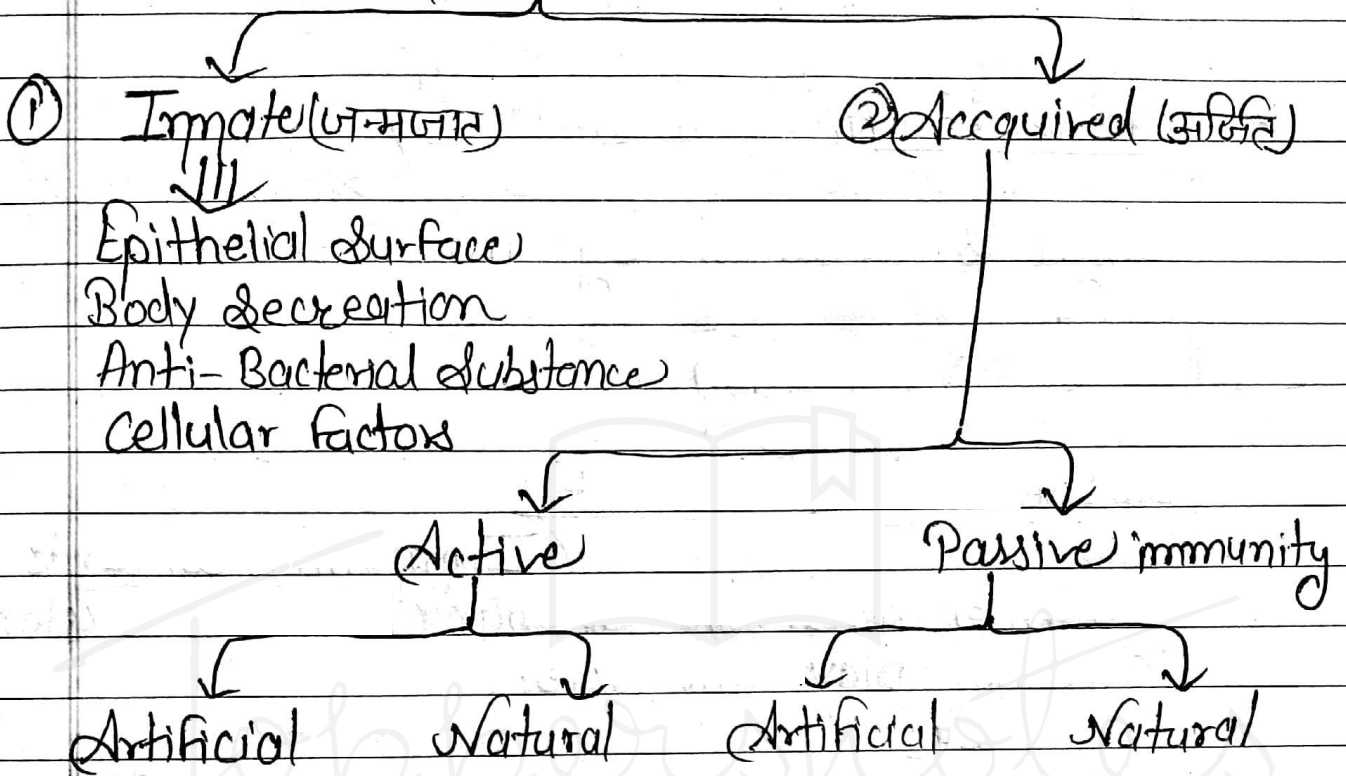 ① Innate (जन्मजात) ② Accquired (अर्जित)
Epithelial Surface
Body Secreation
Anti-Bacterial Substance
Cellular factors
Active Passive immunity
Artificial Natural Artificial Natural